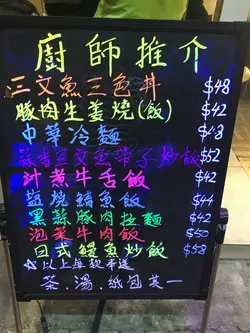 廚師推介
三文魚三色丼 $48
豚肉生姜燒(飯) $42
中華冷麵 $43
蒜香三文魚帶子炒飯 $52
汁煮牛舌飯 $42
鹽燒鯖魚飯 $44
黑蒜豚肉拉麵 $42
泡菜牛肉飯 $50
日式鰻魚炒飯 $58
☆以上每款奉送
茶,湯,紙包其一